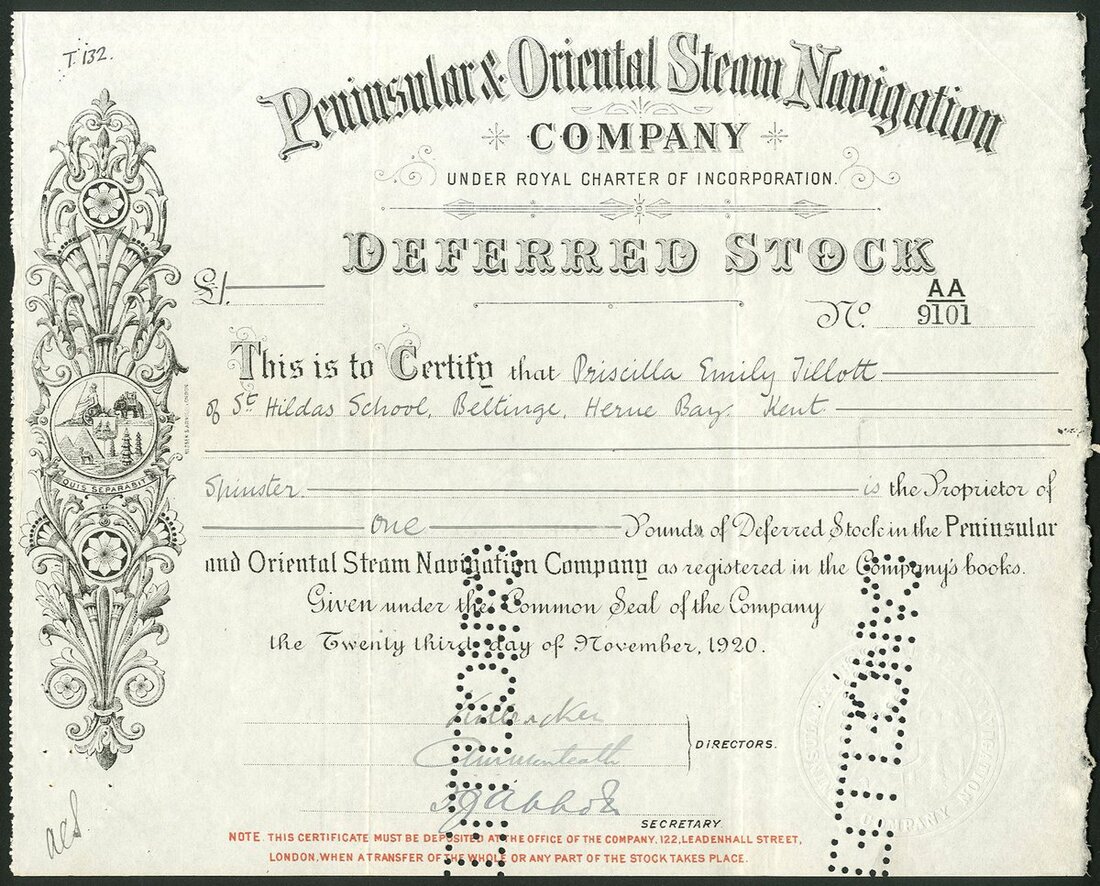 T. 132.
Peninsular & Oriental Steam Navigation
COMPANY
UNDER ROYAL CHARTER OF INCORPORATION.
DEFERRED STOCK
£1.
No. AA 9101
This is to Certify that Priscilla Emily Tillott
of St Hildas School, Beltinge, Herne Bay. Kent
QUIS SEPARABIT
Spinster. is the Proprietor of
one Pounds of Deferred Stock in the Peninsular
and Oriental Steam Navigation Company as registered in the Company's books.
Given under the Common Seal of the Company
the Twenty third day of November, 1920.
DIRECTORS.
SECRETARY
COMPANY
NOTE. THIS CERTIFICATE MUST BE DEPOSITED AT THE OFFICE OF THE COMPANY, 122, LEADENHALL STREET,
LONDON, WHEN A TRANSFER OF THE WHOLE OR ANY PART OF THE STOCK TAKES PLACE.